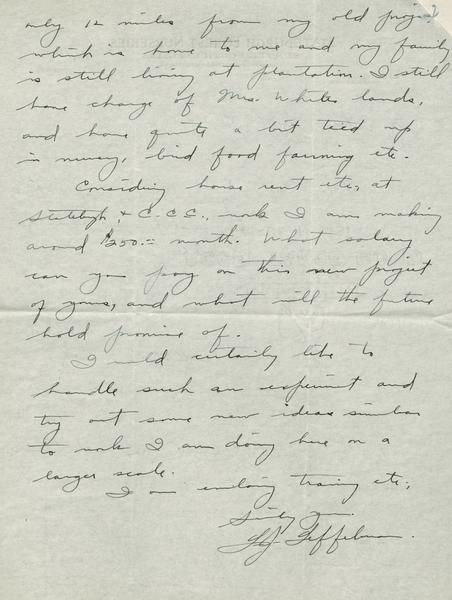 2
only 12 miles from my old project
which is home to me and my family
is still living at plantation. I still
have charge of Mrs. Whites lands,
and have quite a bit tied up
in nursery, bird food farming etc.
Considering house rent etc, at
& C.C.C., work I am making
around $250.00 month. What salary
can you pay on this new project
of yours, and what will the future
hold promise of.
I would certainly like to
handle such an experiment and
try out some new ideas similar
to work I am doing here on a
larger scale.
I am enclosing training etc.,